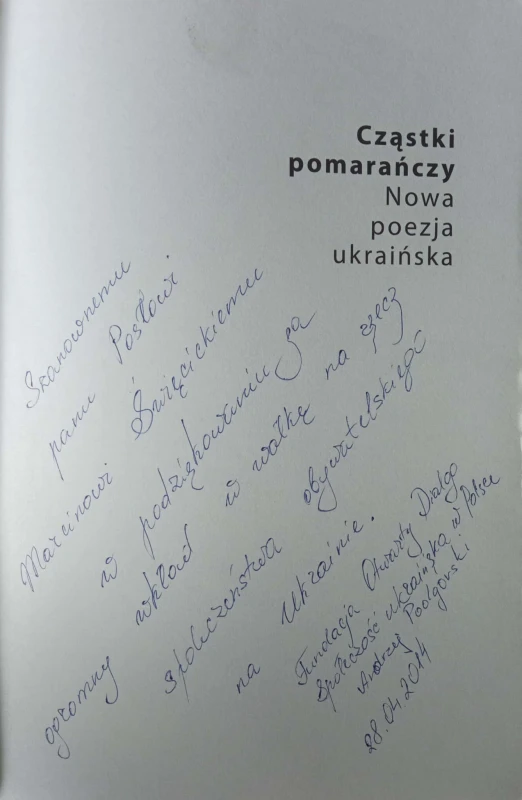 Cząstki
pomarańczy
Nowa
poezja
ukraińska
Szanownemu
panu Posłowi
Marcinowi Święcickiemu
w podziękowaniu za
ogromny wkład w walkę na rzecz
społeczeństwa obywatelskiego
na Ukrainie.
Fundacja Otwarty Dialog
Społeczość ukraińska w Polsce
Andrzej
28.04.2014